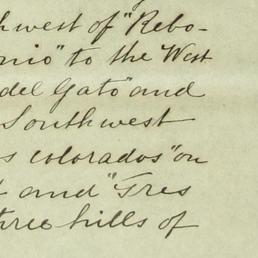 hwest of "Rebo-
nio" to the West
del Gato" and
Southwest
s colorados" on
and "Tres
three hills of